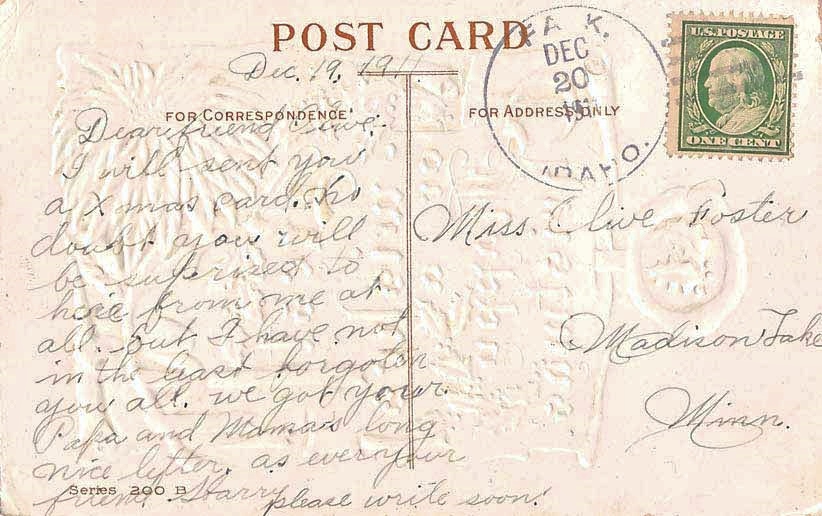 POST CARD
Dec. 19, 1911.
FOR CORRESPONDENCE
FOR ADDRESS ONLY
DEC
20
IDAHO.
U.S. POSTAGE
ONE CENT
Dear friend Olive.
I will sent you
a X mas card. No
doubt you will
be suprized to
here from me at
all. but I have not
in the least forgoten
you all. we got your
Papa and Mama's long
nice letter. as ever your
friend Harry
please write soon!
Miss. Olive Foster
Madison Lake
Minn.
Series 200 B